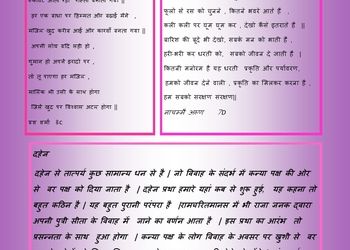 हर एक बाधा पर हिम्मत और बढ़ाई मैंने ,
मंजिल खुद करीब आई और कारवाँ बनता गया ||
अपनी सोच यदि सही हो ,
गुमान हो अपने इरादों पर ,
तो तू पाएगा हर मंजिल ,
मालिक भी तभी के साथ होगा
जिसे खुद पर विश्वास अटल होगा ||
8c
फूलों से रस को चुनने , कितने भंवरे आते है ,
कली कली पर घूम घूम कर , देखो कैसे इतराते हैं ||
बारिश की बूंदे भी देखो, सबके मन को भाती है ,
हरी-भरी कर धरती को, सबको जीवन दे जाती है |
कितनी मनोरम है यह धरती प्रकृति और पर्यावरण,
हमको जीवन देने वाली , प्रकृति का मिलकर करना है ,
हम सबको संरक्षण संरक्षण||
7D
दहेज
दहेज से तात्पर्य कुछ सामान्य धन से है | जो विवाह के संदर्भ में कन्या पक्ष की ओर
से वर पक्ष को दिया जाता है | दहेज प्रथा हमारे यहां कब से शुरू हुई, यह कहना तो
बहुत कठिन है | यह बहुत पुरानी परंपरा है |रामचरितमानस में भी राजा जनक द्वारा
अपनी पुत्री सीता के विवाह में जाने का वर्णन आता है | इस प्रथा का आरंभ तो
सनन्तता के साथ हुआ होगा | कन्या पक्ष के लोग विवाह के अवसर पर खुशी से वर